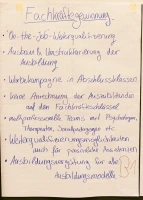 Fachkräftegewinnung
- On-the-Job-Weiterqualifizierung
- Ausbau & Umstrukturierung der
Ausbildung
- Werbekampagne in Abschlussklassen
- keine Anrechnung der Auszubildenden
auf den Fachkräfteschlüssel
- multiprofessionelle Teams mit Psychologen,
Therapeuten, Sozialpädagogen etc.
- Weiterqualifizierungsmöglichkeiten
auch für persönliche Assistenzen
- Ausbildungsvergütung für alle
Ausbildungsmodelle